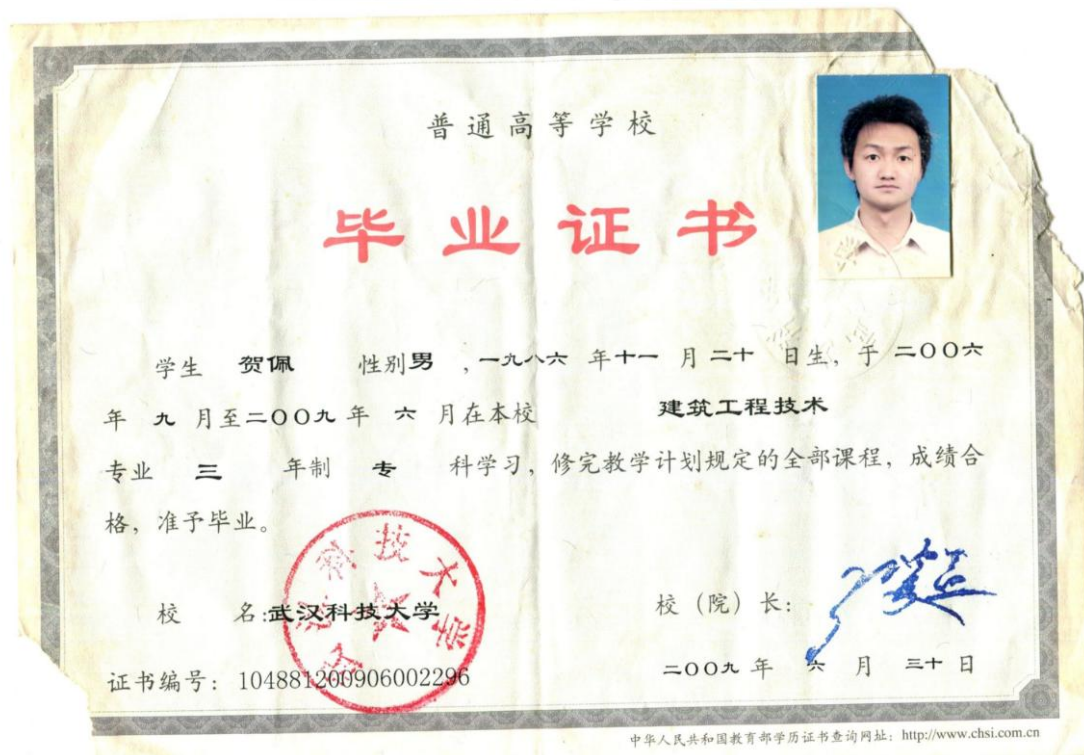 普通高等学校
毕业证书
学生 贺佩 性别男 ,一九八六 年十一 月二十 日生, 于 二〇〇六
年 九 月至二〇〇九 年 六 月在本校 建筑工程技术
专业 三 年制 专 科学习, 修完教学计划规定的全部课程, 成绩合
格, 准予毕业。
校 名:武汉科技大学
校（院）长:
证书编号: 104881200906002296
二〇〇九 年 六 月 三十 日
中华人民共和国教育部学历证书查询网址: http://www.chsi.com.cn